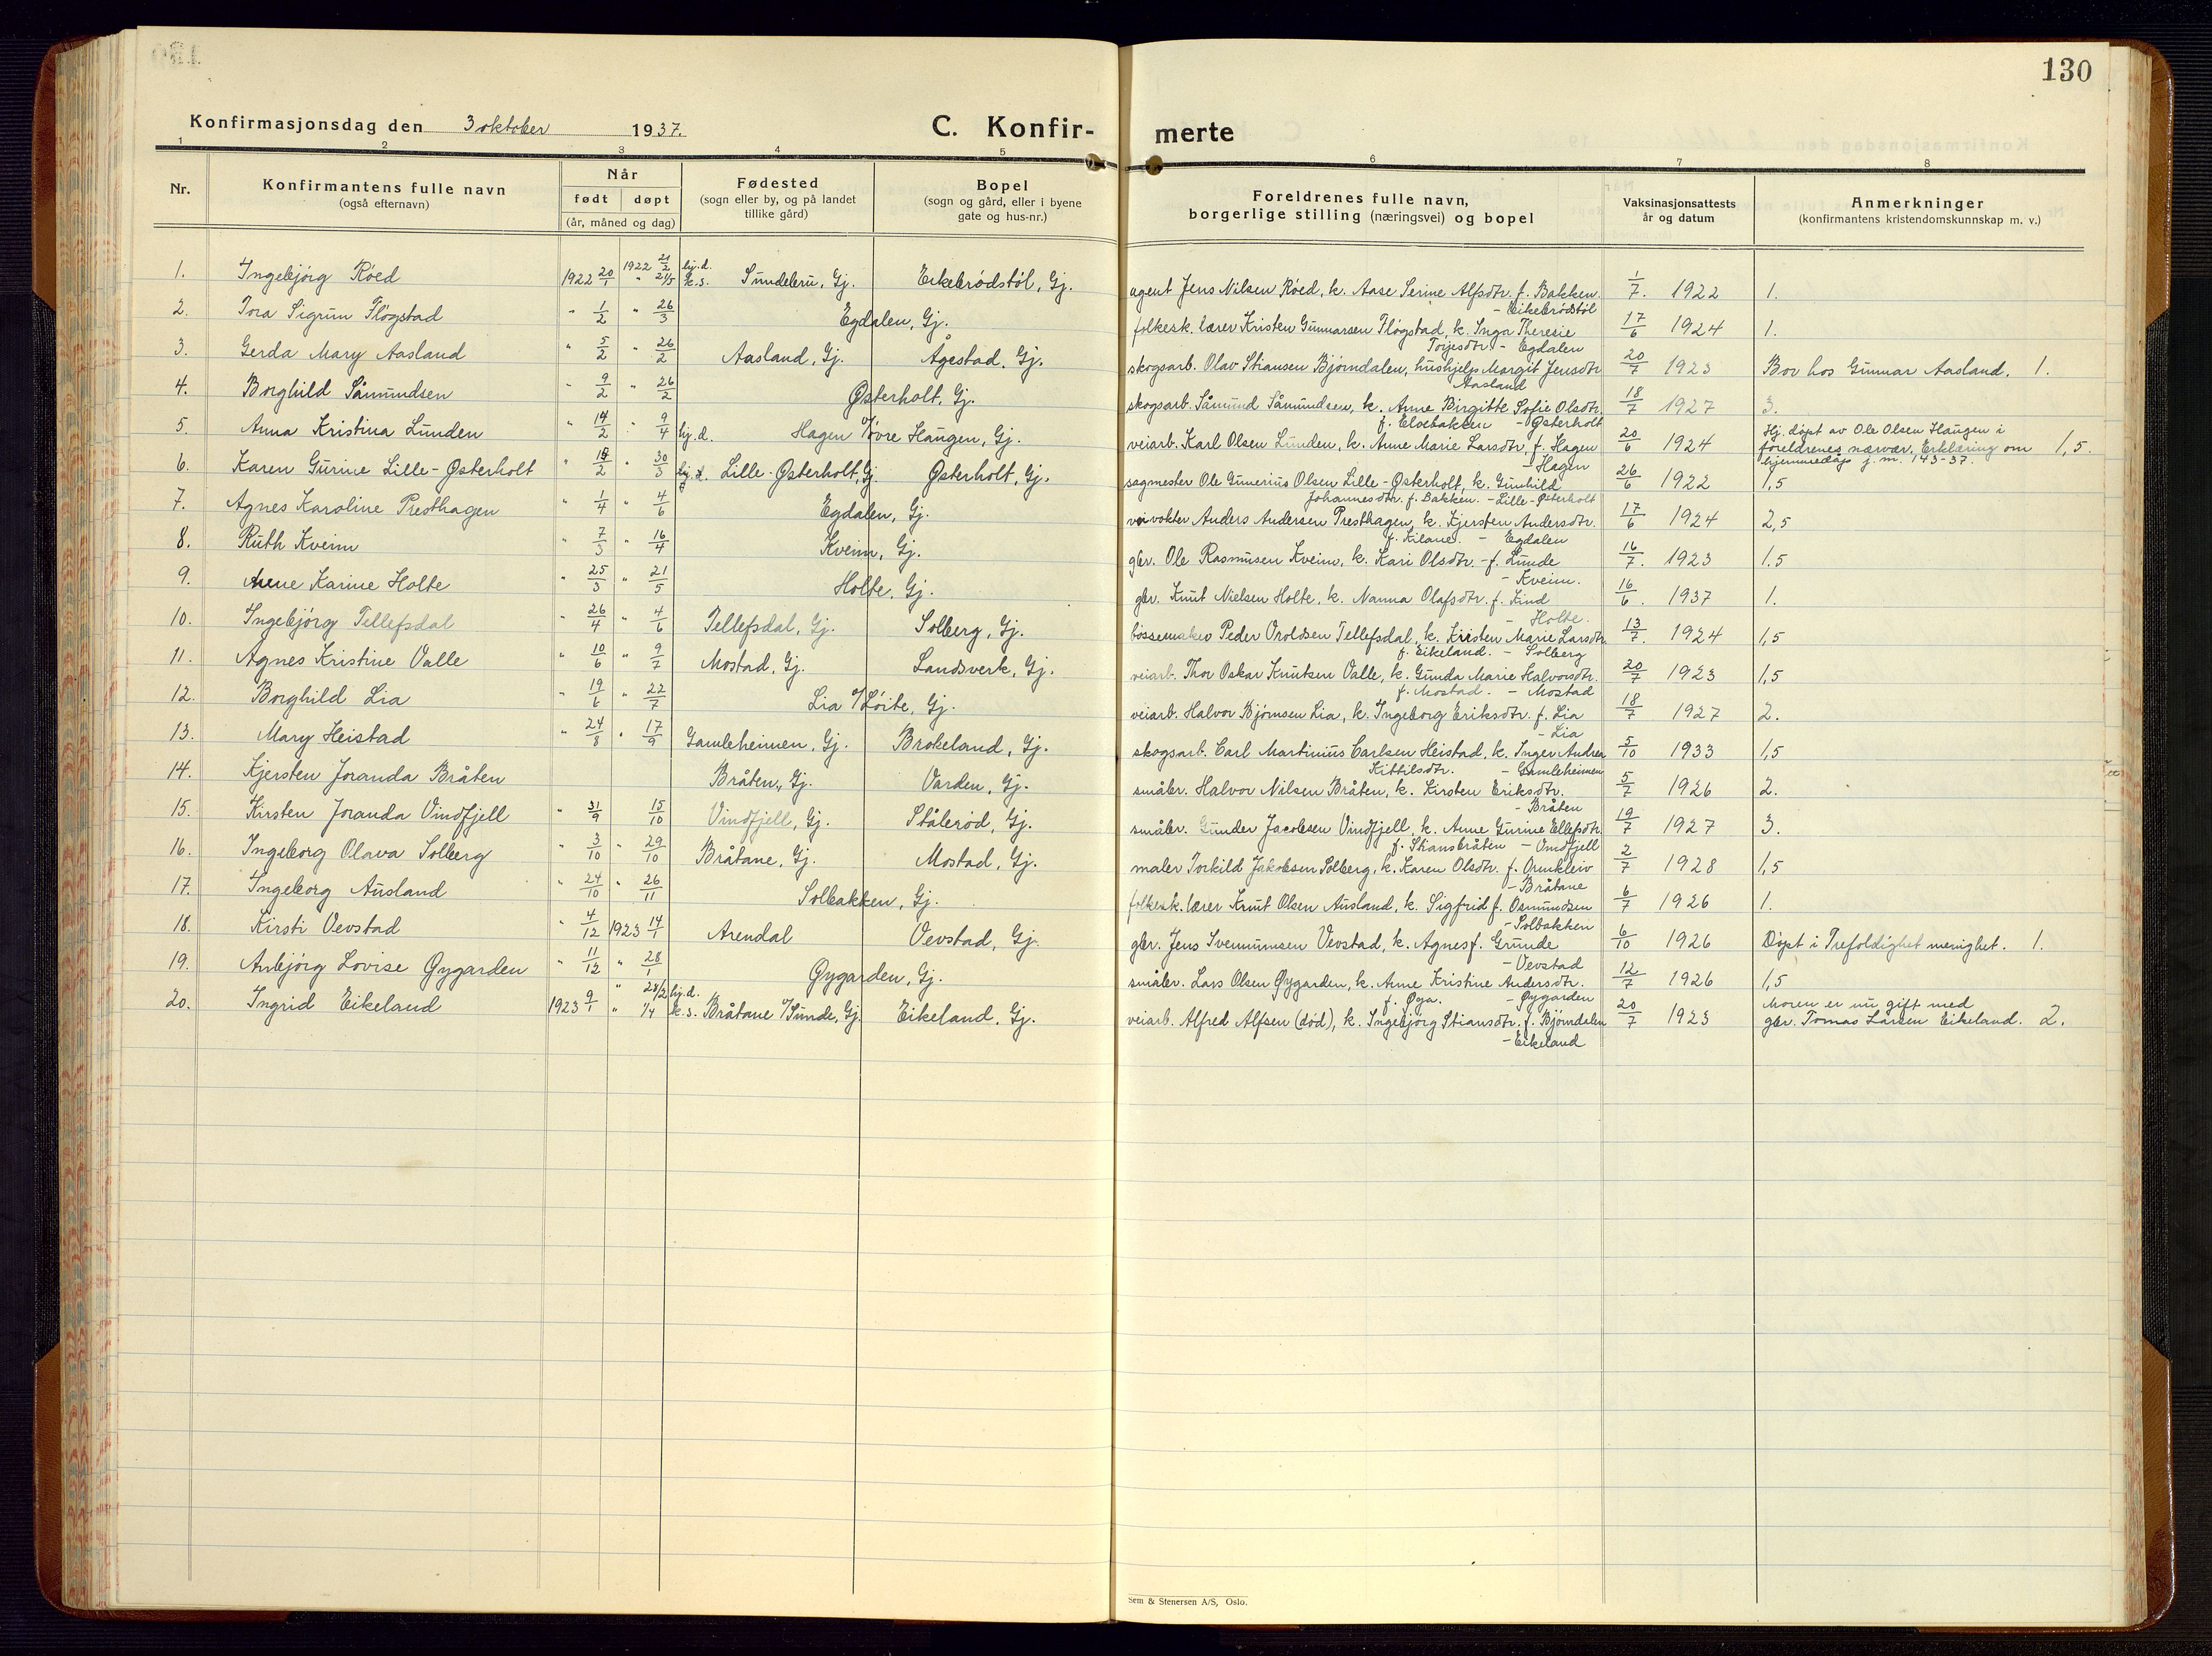 130
Konfirmasjonsdag den 3 oktober 1937.
C. Konfir- merte
1 2 3 4 5 6 7 8
Nr.
Konfirmantens fulle navn
(også efternavn)
Når
født døpt
(år, måned og dag)
Fødested
(sogn eller by, og på landet
tillike gård)
Bopel
(sogn og gård, eller i byene
gate og hus-nr.)
Foreldrenes fulle navn,
borgerlige stilling (næringsvei) og bopel
Vaksinasjonsattests
år og datum
Anmerkninger
(konfirmantens kristendomskunnskap m. v.)
1. Ingebjörg Röed 1922 20/1 1922 21/2 hj.d. " 21/5 k.s. Sundebru, Gj. Eikebrødstöl, Gj. agent Jens Nilsen Röed, k. Aase Serine Alfsdtr. f. Bakken. 1/7. 1922 1.
- Eikebrødstöl
2. Tora Sigrun Flögstad " 1/2 " 26/3 Egdalen, Gj. folkesk. lærer Kristen Gunnarsen Flögstad, k. Inga Theresie 17/6 1924 1.
Torjesdtr - Egdalen
3. Gerda Mary Aasland " 5/2 " 26/2 Aasland, Gj. Ågestad, Gj. skogsarb. Olav Stiansen Bjørndalen, hushjelp Margit Jensdtr 20/7 1923 Bor hos Gunnar Aasland. 1.
Aasland
4. Borghild Såmundsen " 9/2 " 26/2 Østerholt, Gj. skogsarb. Såmund Såmundsen, k. Anne Birgitte Sofie Olsdtr. 18/7 1927 3.
f. Elsebakken - Østerholt
5. Anna Kristina Lunden " 14/2 " 9/4 hj.d. Hagen u/ Øvre Haugen, Gj. veiarb. Karl Olsen Lunden, k. Anne Marie Larsdtr. f. Hagen 20/6 1924 Hj. døpt av Ole Olsen Haugen i
- Hagen foreldrenes nærvær. Erklæring om 1,5.
hjemmedåp j. nr. 143-37.
6. Karen Gurine Lille-Østerholt " 18/2 " 30/3 hj.d. Lille-Østerholt, Gj. Østerholt, Gj. sagmester Ole Gunerius Olsen Lille-Østerholt, k. Gunhild 26/6 1922 1,5
Johannesdtr. f. Bakken. - Lille-Østerholt
7. Agnes Karoline Presthagen " 1/4 " 4/6 Egdalen, Gj. veivokter Anders Andersen Presthagen, k. Kjersten Andersdtr. 17/6 1924 2,5
f. Kilane. - Egdalen
8. Ruth Kveim " 7/3 " 16/4 Kveim, Gj. gbr. Ole Rasmusen Kveim, k. Kari Olsdtr. - f. Lunde 16/7. 1923 1.5
- Kveim.
9. Anne Karine Holte " 25/3 " 21/5 Holte, Gj. gbr. Knut Nielsen Holte, k. Nanna Olafsdtr. f. Lind 16/6. 1937 1.
- Holte.
10. Ingebjörg Tellefsdal " 26/4 " 4/6 Tellefsdal, Gj. Solberg, Gj. bössemaker Peder Oroldsen Tellefsdal, k. Kristen Marie Larsdtr. 13/7. 1924 1,5
f. Eikeland. - Solberg
11. Agnes Kristine Valle " 10/6 " 9/7 Mostad, Gj. Landsverk, Gj. veiarb. Thor Oskar Knutsen Valle, k. Gunda Marie Halvorsdtr. 20/7 1923 1,5
f. Mostad. - Mostad
12. Borghild Lia " 19/6 " 22/7 Lia u/ Löite, Gj. veiarb. Halvor Bjørnsen Lia, k. Ingeborg Eriksdtr. f. Lia 18/7 1927 2.
- Lia
13. Mary Heistad " 24/8 " 17/9 Gamleheimen, Gj. Brokeland, Gj. skogsarb. Carl Martinius Carlsen Heistad, k. Inger Andrea 5/10 1933 1,5
Kittilsdtr. - Gamleheimen
14. Kjersten Joranda Bråten Bråten, Gj. Varden, Gj. småbr. Halvor Nilsen Bråten, k. Kirsten Eriksdtr. 5/7 1926 2.
- Bråten
15. Kirsten Joranda Vindfjell " 31/9 15/10 Vindfjell, Gj. Stålerød, Gj. småbr. Gunder Jacobsen Vindfjell, k. Anne Gurine Ellefsdtr. 19/7 1927 3.
f. Stiansbråten - Vindfjell
16. Ingeborg Olava Solberg " 3/10 " 29/10 Bråtane, Gj. Mostad, Gj. maler Torkild Jakobsen Solberg, k. Karen Olsdtr. f. Ormkleiv 2/7 1928 1,5
- Bråtane
17. Ingeborg Ausland " 24/10 " 26/11 Solbakken, Gj. folkesk. lærer Knut Olsen Ausland, k. Sigfrid f. Osmundsen 6/7 1926 1.
- Solbakken
18. Kirsti Vevstad " 4/12 1923 14/1 Arendal Vevstad, Gj. gbr. Jens Svennumsen Vevstad, k. Agnes f. Grunde 6/10 1926 Døpt i Trefoldighet menighet. 1.
- Vevstad
19. Anbjörg Lovise Øygarden " 11/12 " 28/1 Øygarden, Gj. småbr. Lars Olsen Øygarden, k. Anne Kristine Andersdtr. 12/7 1926 1,5
f. Øya. - Øygarden
20. Ingrid Eikeland 1923 9/1 " 28/2 hj.d. " 1/4 k.s. Bråtane u/ Sunde, Gj. Eikeland, Gj. veiarb. Alfred Alfsen (död), k. Ingebjörg Stiansdtr. f. Bjørndalen 20/7 1923 Moren er nu gift med
- Eikeland gbr. Tomas Larsen Eikeland. 2.
Sem & Stenersen A/S, Oslo.